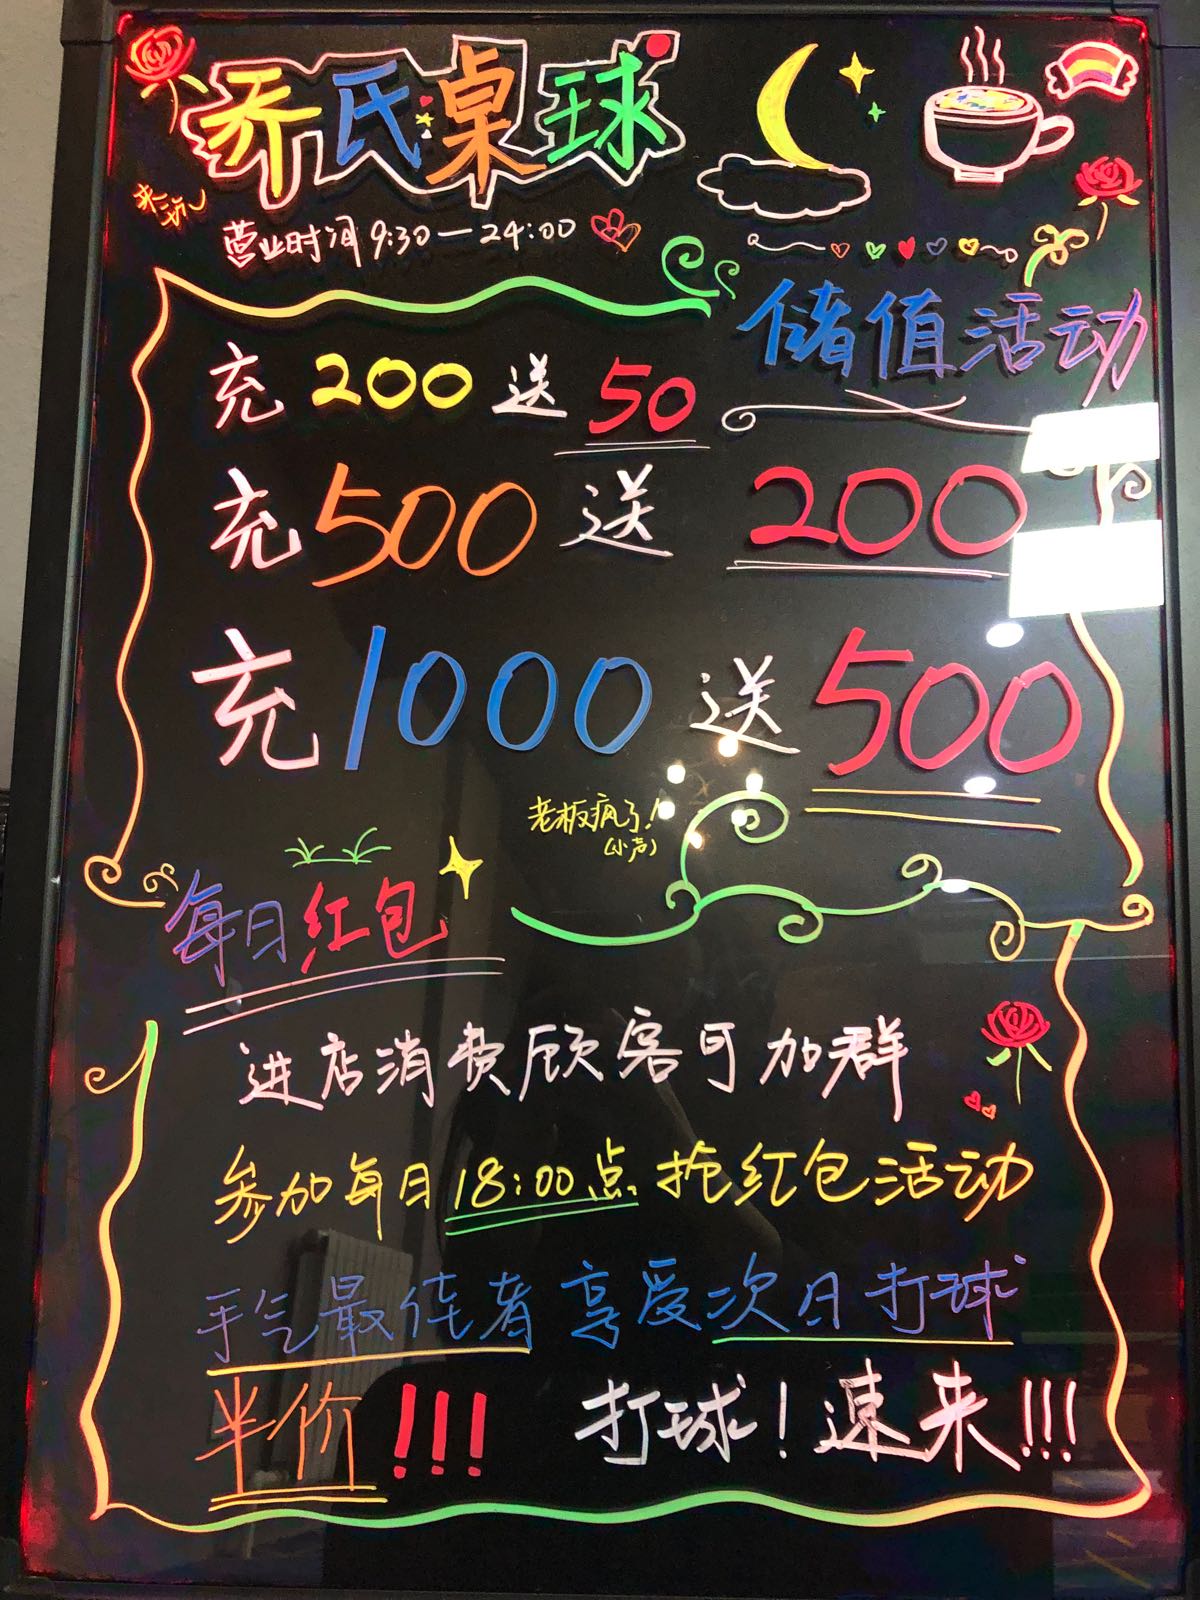 乔氏桌球
来玩
营业时间9:30—24:00
储值活动
充200送50
充500送200
充1000送500
老板疯了!
(小声)
每日红包
进店消费顾客可加群
参加每日18:00点抢红包活动
手气最佳者享受次日打球
半价!!! 打球!速来!!!